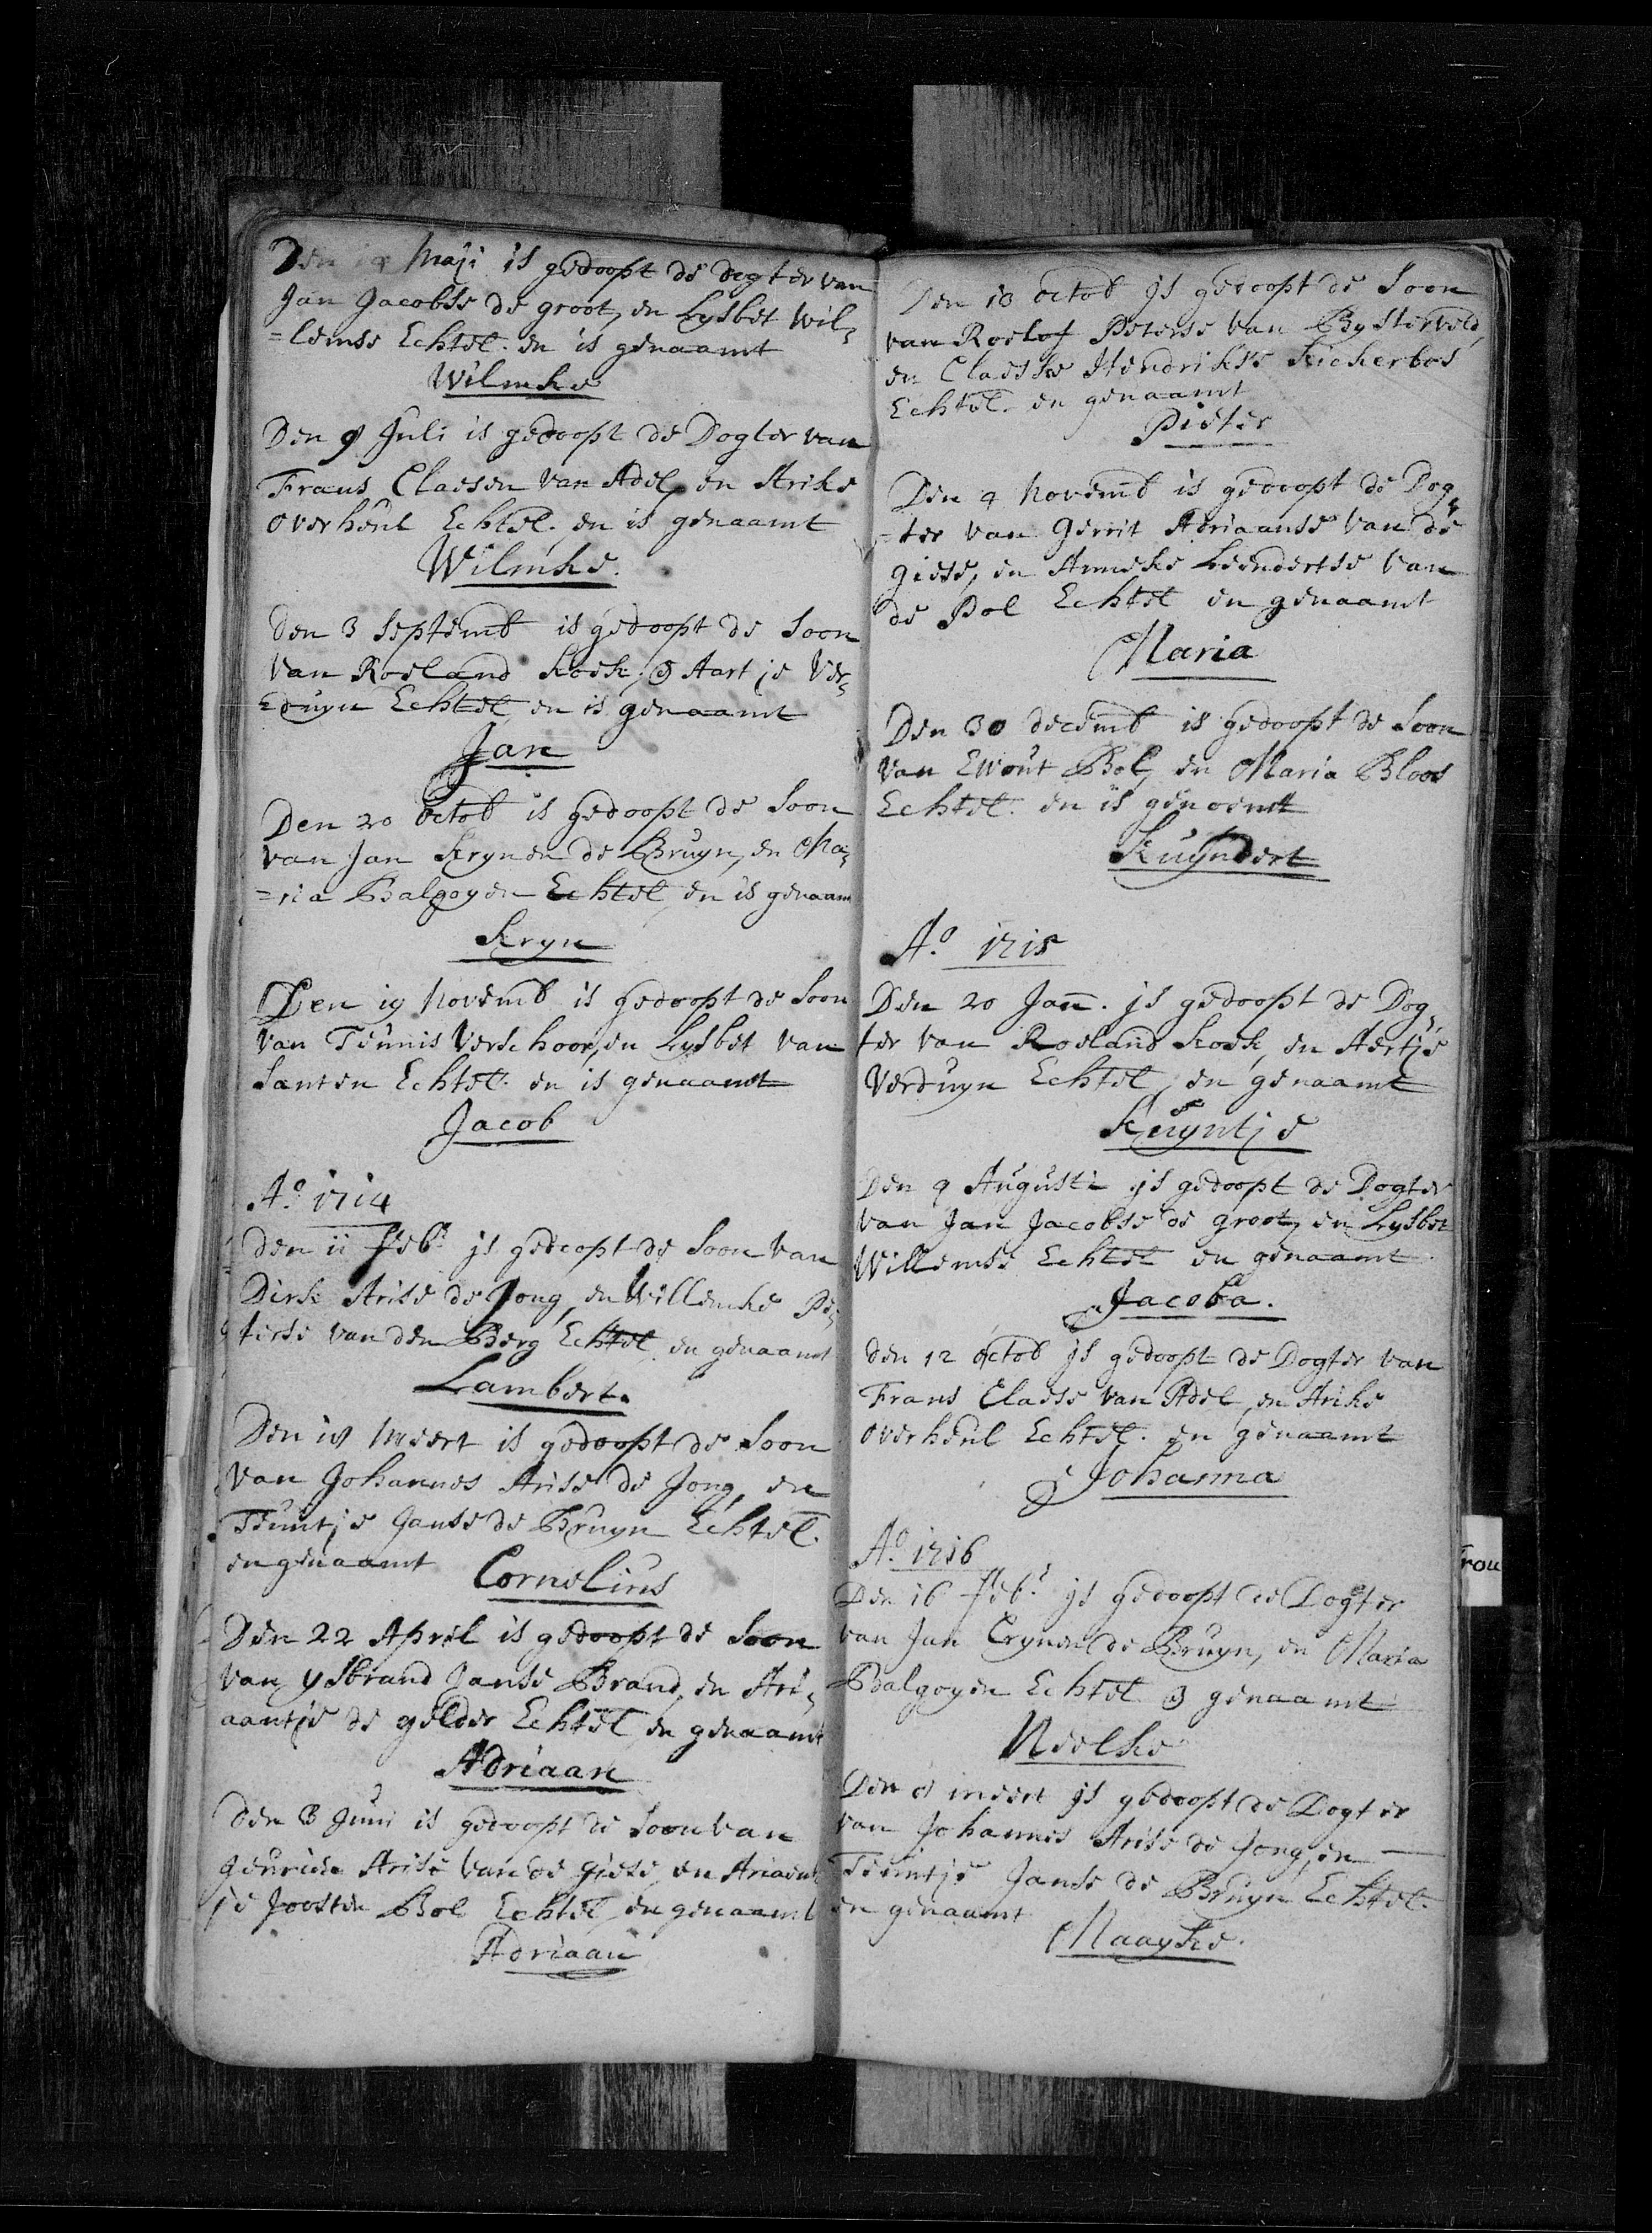 Den 14 Maji is gedoopt de dogter van
Jan Jacobse de groot, en Lysbet Wil¬
=lemse Echtel. en is genaamt
Wilmke
Den 9 Juli is gedoopt de Dogter van
Frans Claesen van Adel, en Arike
overheul Echtel. en is genaamt
Wilmke.
Den 3 Septemb is gedoopt de Soon
Van Roeland Kock, & Aartje Ver¬
=duyn Echtel, en is genaamt
Jan
Den 20 octob is gedoopt de Soon
van Jan Krynen de Bruyn, en Ma¬
=ria Balgoyen Echtel, en is genaam
Kryn
Den 19 Novemb is gedoopt de Soon
van Teunis Verschoor, en Lysbet van
Santen Echtel. en is genaamt
Jacob
Ao. 1714
Den 11 Febr. js gedoopt de Soon van
Dirk Arise de Jong, en Willemke Pe¬
terse van den Berg Echtel. en genaamt
Lambert.
Den 18 Meert is gedoopt de Soon
van Johannes Arise de Jong, en
Teuntje Janse de Bruyn Echtel.
en genaamt Cornelius
Den 22 April is gedoopt de Soon
van ysbrand Janse Brand, en Ari¬
aantje de gelder Echtel, en genaamt
Adriaan
Den 3 Juni is gedoopt de Soon van
Arise van de giese, en Ariaent
je Joosten Bol Echtel, en genaamt
Adriaan
Den 10 octob js gedoopt de Soon
van Roelof Peterse van Bysterveld,
en Claeske Hendrikse Kickerbos
Echtel. en genaamt
Pieter
Den 4 Novemb is gedoopt de Dog¬
=ter van Gerrit Adriaanse van de
giese, en Anneke Leendertse van
de Pol Echtel en genaamt
Maria
Den 30 decemb is gedoopt de Soon
van Ewout Bol, en Maria Bloos
Echtel. en is genoemt
Kuyndert
Ao. 1715
Den 20 Jan. js gedoopt de Dog¬
ter van Roeland Kock, en Aertje
Verduyn Echtel, en genaamt
Kuyntje
Den 9 Augusti js gedoopt de Dogter
van Jan Jacobse de groot, en Lysbet
Willemse Echtel en genaamt
Jacoba.
Den 12 octob js gedoopt de Dogter van
Frans Claese van Adel, en Arike
overheul Echtel. en genaamt
Johanna
Ao. 1716
Den 16 Febr. js gedoopt de Dogter
van Jan Crynen de Bruyn, en Maria
Balgoyen Echtel & genaamt
Neelke
Den 8 meert js gedoopt de Dogter
van Johannes Arise de Jong, en
Teuntje Janse de Bruyn Echtel.
en genaamt
Maayke.
rou